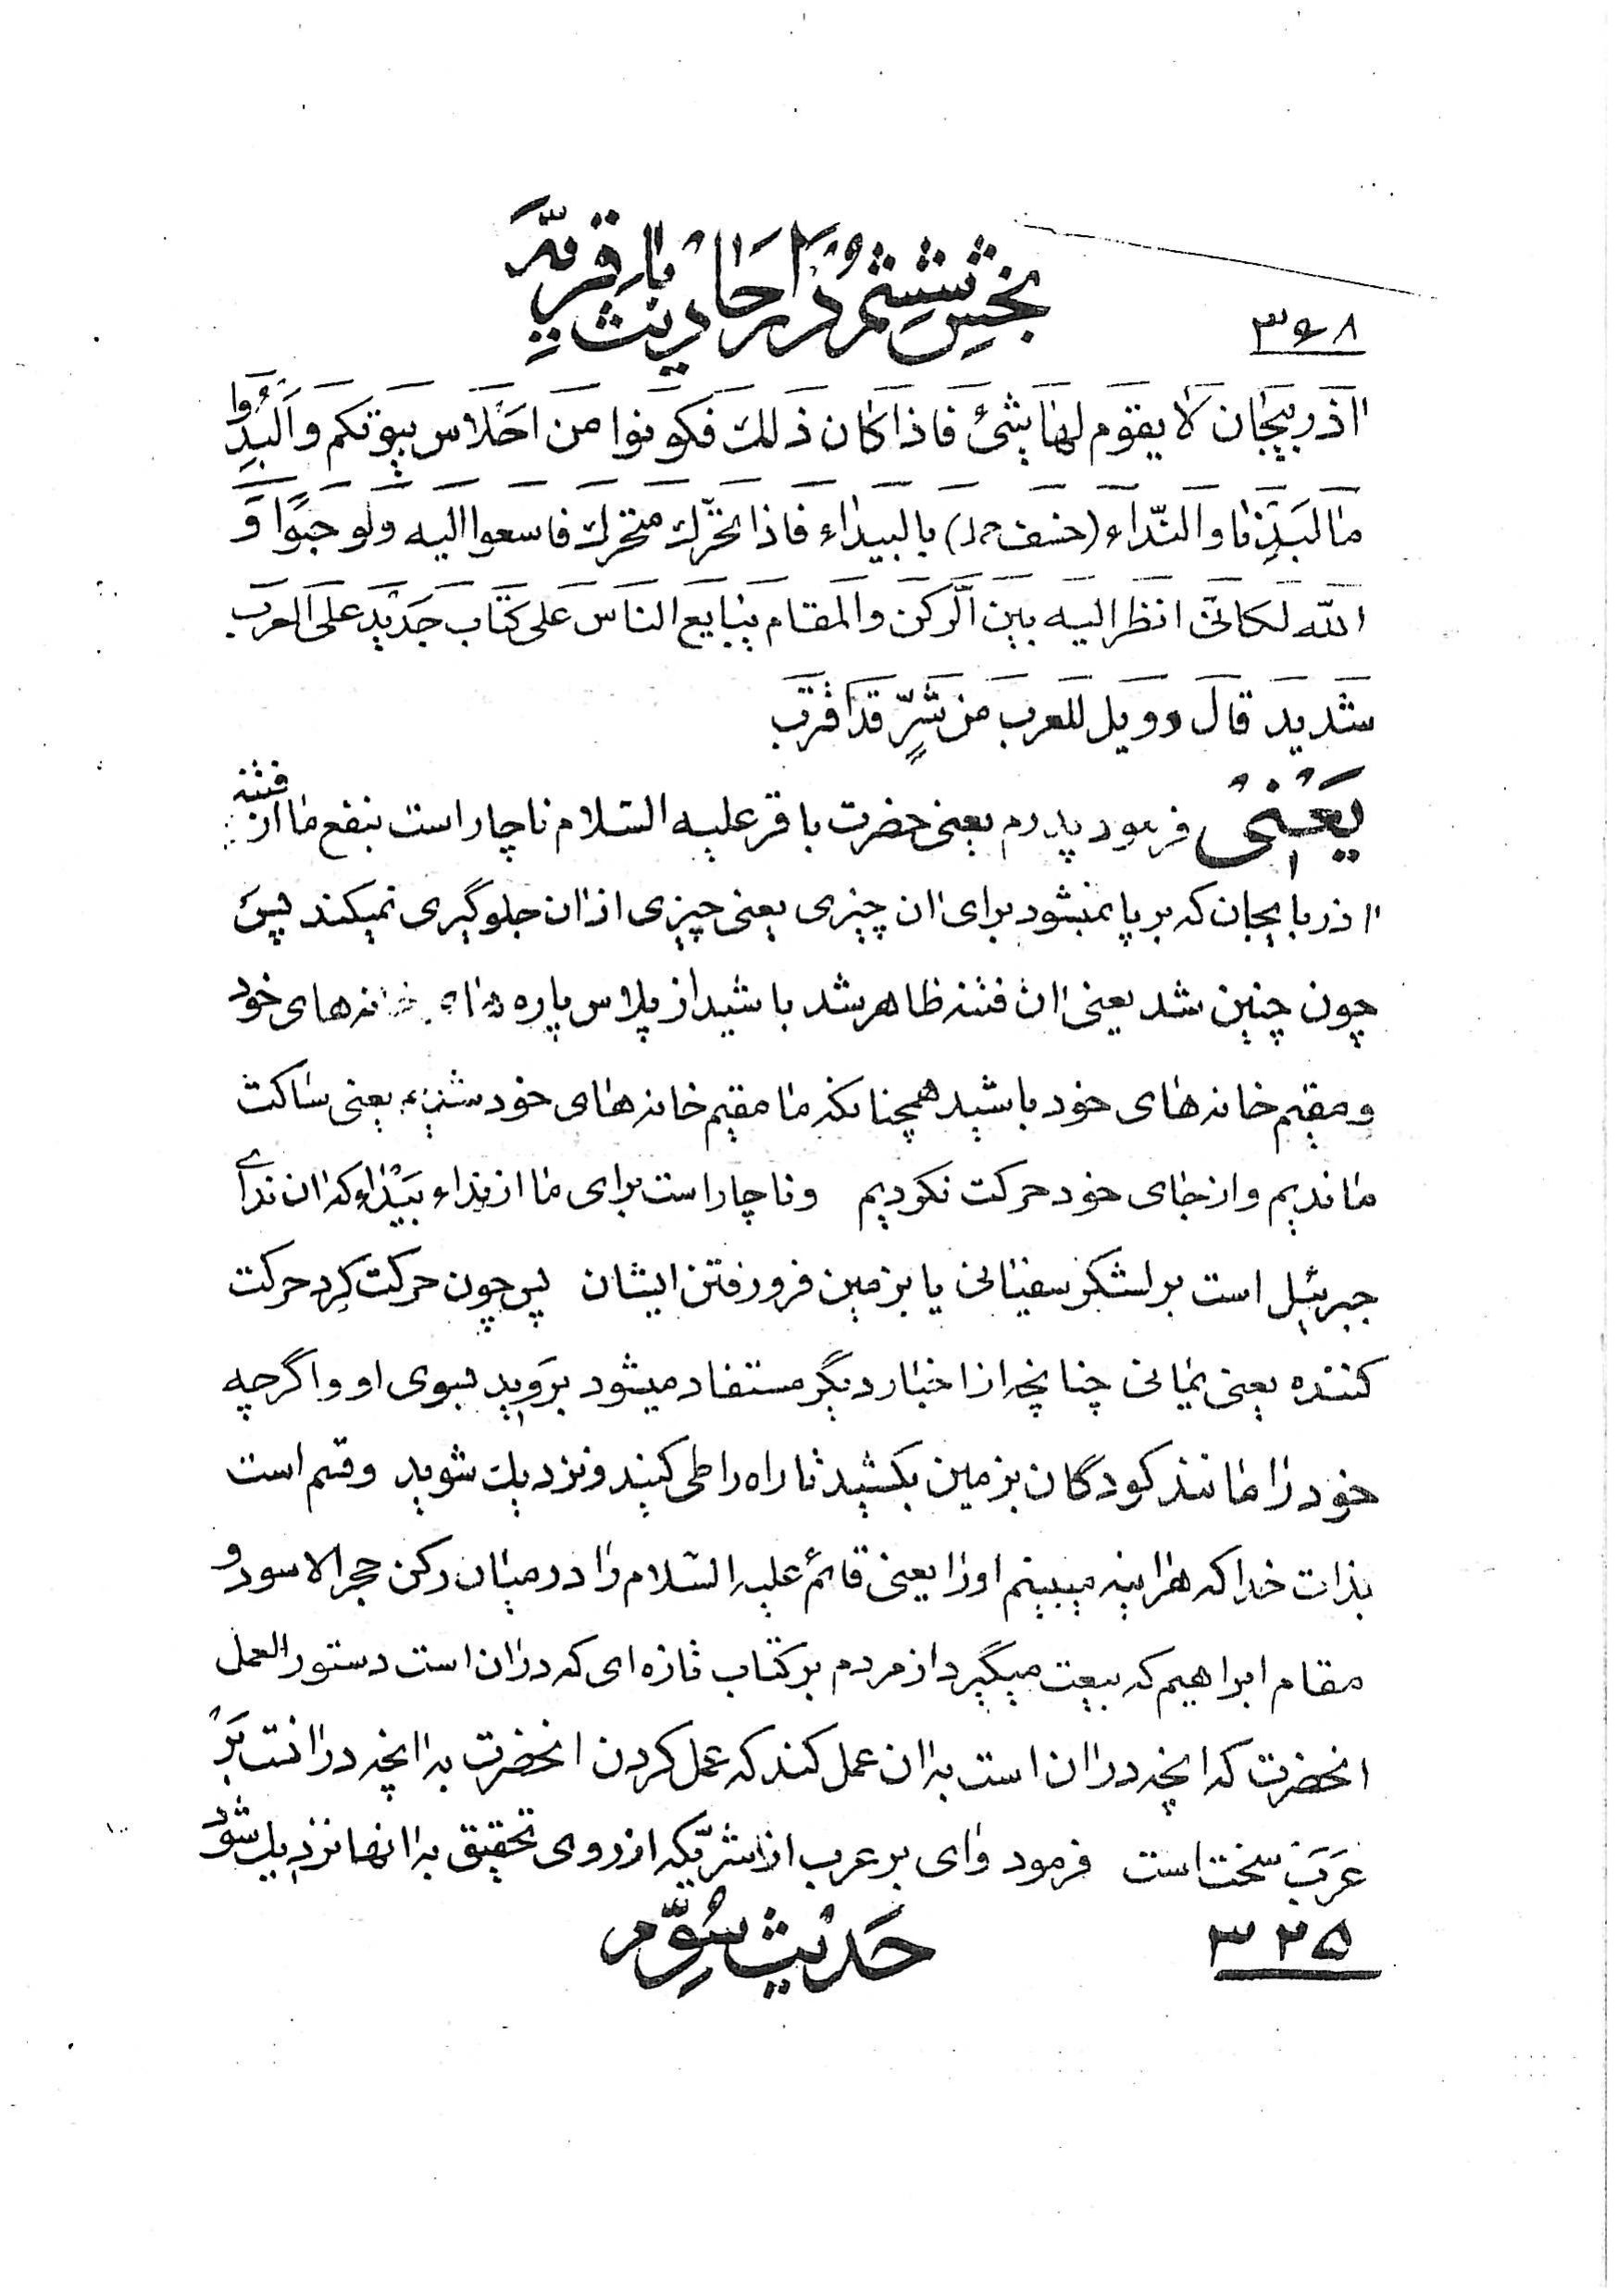 ۳۶۸
بخش ششم در احادیث باقریه
آذربیجان لا یقوم لها شیٔ فاذا کان ذلک فکونوا من احلاس بیوتکم و البدوا
ما البدنا و النداء (خسف خ‌ل) بالبیداء فاذا تحرّک متحرک فاسعوا الیه و لو حبوًا و
الله لکانی انظر الیه بین الرکن و المقام یبایع الناس علی کتاب جدید علی العرب
شدید قال و ویل للعرب من شرٍّ قد اقترب
یعنی فرمود پدرم یعنی حضرت باقر علیه السّلام ناچار است بنفع ما از فتنه
آذربایجان که برپا نمیشود برای آن چیزی یعنی چیزی از آن جلوگیری نمیکند پس
چون چنین شد یعنی آن فتنه ظاهر شد باشید از پلاس پاره های خانه‌های خود
و مقیم خانه‌های خود باشید همچنانکه ما مقیم خانه‌های خود شدیم یعنی ساکت
ماندیم و از جای خود حرکت نکردیم و ناچار است برای ما از نداء بیداء که آن ندای
جبرئیل است بر لشکر سفیانی یا بزمین فرو رفتن ایشان پس چون حرکت کرد حرکت
کننده یعنی یمانی چنانچه از اخبار دیگر مستفاد میشود بروید بسوی او و اگرچه
خود را مانند کودگان بزمین بکشید تا راه را طی کنید و نزدیک شوید و قسم است
بذات خدا که هراینه میبینم او را یعنی قائم علیه السّلام را در میان رکن حجر الاسود و
مقام ابراهیم که بیعت میگیرد از مردم بر کتاب تازه‌ای که در آن است دستورالعمل
آنحضرت که آنچه در آن است به آن عمل کند که عمل کردن آنحضرت به آنچه در آنست بر
عرب سخت است فرمود وای بر عرب از شرّیکه از روی تحقیق به آنها نزدیک شود
۳۲۵
حدیث سوّم